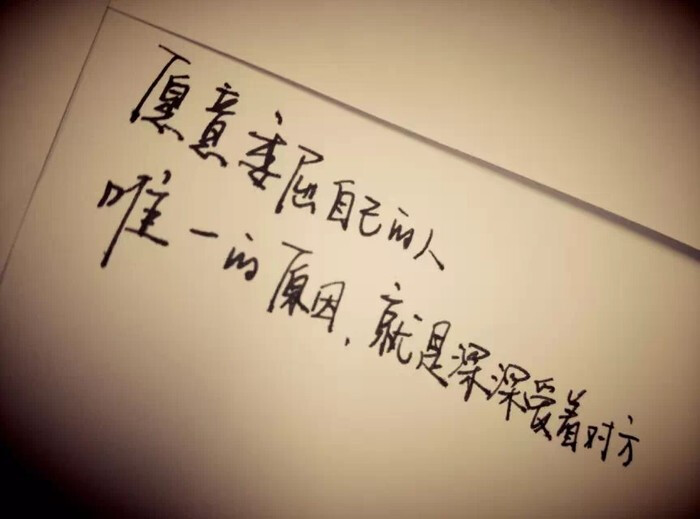 愿意委屈自己的人
唯一的原因,就是深深爱着对方